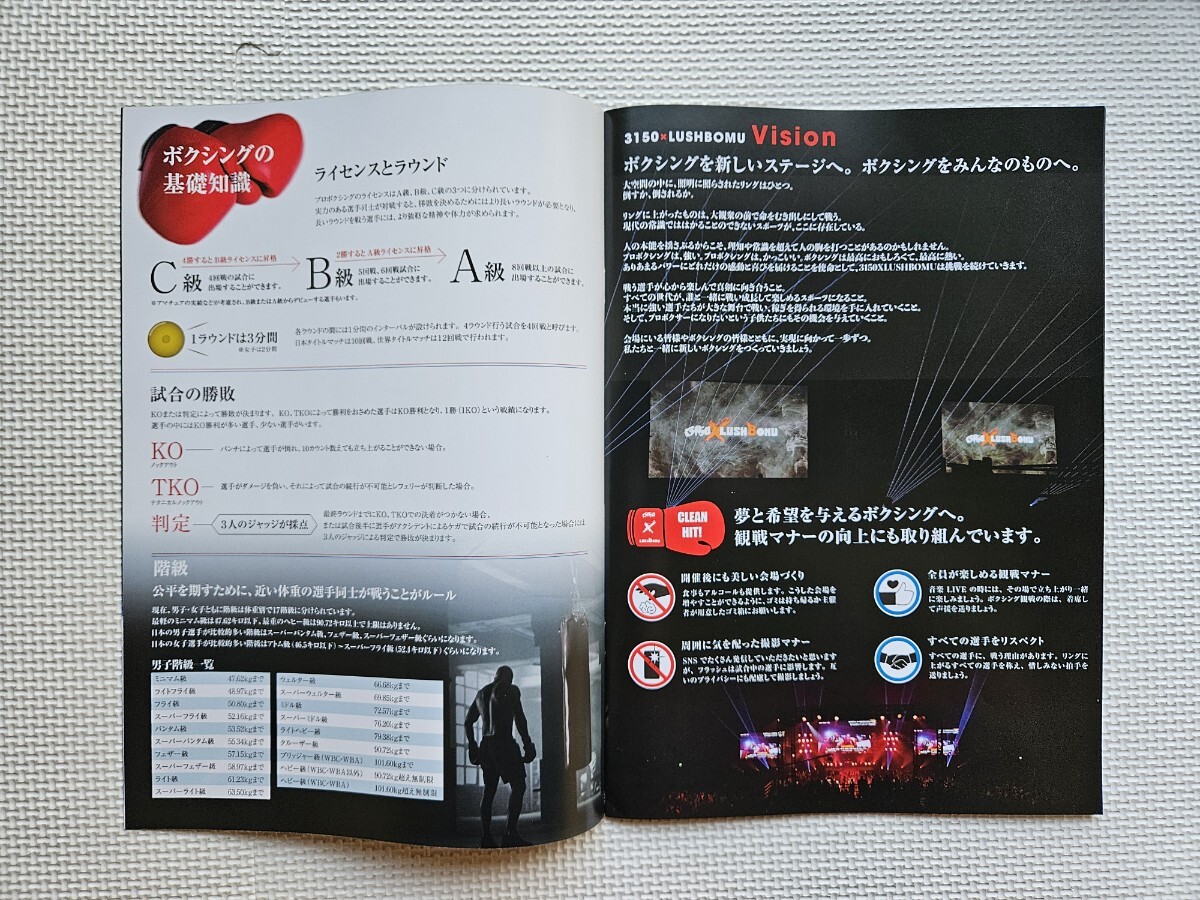 ボクシングの
基礎知識
ライセンスとラウンド
プロボクシングのライセンスはA級、B級、C級の3つに分けられています。
実力のある選手同士が対戦すると、勝敗を決めるためにはより長いラウンドが必要となり、
長いラウンドを戦う選手には、より強靭な精神や体力が求められます。
4勝するとB級ライセンスに昇格
2勝するとA級ライセンスに昇格
C級
4回戦の試合に
出場することができます。
B級
5回戦、6回戦試合に
出場することができます。
A級
8回戦以上の試合に
出場することができます。
※アマチュアの実績などが考慮され、B級またはA級からデビューする選手もいます。
1ラウンドは3分間
※女子は2分間
各ラウンドの間には1分間のインターバルが設けられます。4ラウンド行う試合を4回戦と呼びます。
日本タイトルマッチは10回戦、世界タイトルマッチは12回戦で行われます。
試合の勝敗
KOまたは判定によって勝敗が決まります。KO、TKOによって勝利をおさめた選手はKO勝利となり、1勝(1KO)という戦績になります。
選手の中にはKO勝利が多い選手、少ない選手がいます。
KO
ノックアウト
パンチによって選手が倒れ、10カウント数えても立ち上がることができない場合。
TKO
テクニカルノックアウト
選手がダメージを負い、それによって試合の続行が不可能とレフェリーが判断した場合。
判定
3人のジャッジが採点
最終ラウンドまでにKO、TKOでの決着がつかない場合。
または試合後半に選手がアクシデントによるケガで試合の続行が不可能となった場合には
3人のジャッジによる判定で勝敗が決まります。
階級
公平を期すために、近い体重の選手同士が戦うことがルール
現在、男子・女子ともに階級は体重別で17階級に分けられています。
最軽のミニマム級は47.62キロ以下、最重のヘビー級は90.72キロ以上で上限はありません。
日本の男子選手が比較的多い階級はスーパーバンタム級、フェザー級、スーパーフェザー級ぐらいになります。
日本の女子選手が比較的多い階級はアトム級(46.5キロ以下)〜スーパーフライ級(52.1キロ以下)ぐらいになります。
男子階級一覧
ミニマム級 47.62kgまで
ライトフライ級 48.97kgまで
フライ級 50.80kgまで
スーパーフライ級 52.16kgまで
バンタム級 53.52kgまで
スーパーバンタム級 55.34kgまで
フェザー級 57.15kgまで
スーパーフェザー級 58.97kgまで
ライト級 61.23kgまで
スーパーライト級 63.50kgまで
ウェルター級 66.68kgまで
スーパーウェルター級 69.85kgまで
ミドル級 72.57kgまで
スーパーミドル級 76.20kgまで
ライトヘビー級 79.38kgまで
クルーザー級 90.72kgまで
ブリッジャー級(WBC・WBA) 101.60kgまで
ヘビー級(WBC・WBA以外) 90.72kg超え無制限
ヘビー級(WBC・WBA) 101.60kg超え無制限
3150×LUSHBOMU Vision
ボクシングを新しいステージへ。ボクシングをみんなのものへ。
大空間の中に、照明に照らされたリングはひとつ。
倒すか、倒されるか。
リングに上がったものは、大観衆の前で命をむき出しにして戦う。
現代の常識でははかることのできないスポーツが、ここに存在している。
人の本能を揺さぶるからこそ、理知や常識を超えて人の胸を打つことがあるのかもしれません。
プロボクシングは、強い。プロボクシングは、かっこいい。ボクシングは最高におもしろくて、最高に熱い。
ありあまるパワーにどれだけの感動と喜びを届けることを使命として、3150XLUSHBOMUは挑戦を続けていきます。
戦う選手が心から楽しんで真剣に向き合うこと。
すべての世代が、誰と一緒に戦い成長して楽しめるスポーツになること。
本当に強い選手たちが大きな舞台で戦い、稼ぎを得られる環境を手に入れていくこと。
そして、プロボクサーになりたいという子供たちにもその機会を与えていくこと。
会場にいる皆様やボクシングの皆様とともに、実現に向かって一歩ずつ。
私たちと一緒に新しいボクシングをつくっていきましょう。
XLUSHBOMU
XLUSHBOMU
X
LUSHBOMU
CLEAN
HIT!
夢と希望を与えるボクシングへ。
観戦マナーの向上にも取り組んでいます。
開催後にも美しい会場づくり
食事もアルコールも提供します。こうした会場を
増やすことができるように、ゴミは持ち帰るか主催
者が用意したゴミ箱にお願いします。
全員が楽しめる観戦マナー
音楽LIVEの時には、その場で立ち上がり一緒
に楽しみましょう。ボクシング観戦の際は、着席し
て声援を送りましょう。
周囲に気を配った撮影マナー
SNSでたくさん発信していただきたいと思います
が、フラッシュは試合中の選手に影響します。互
いのプライバシーにも配慮して撮影しましょう。
すべての選手をリスペクト
すべての選手に、戦う理由があります。リングに
上がるすべての選手を称え、惜しみない拍手を
送りましょう。